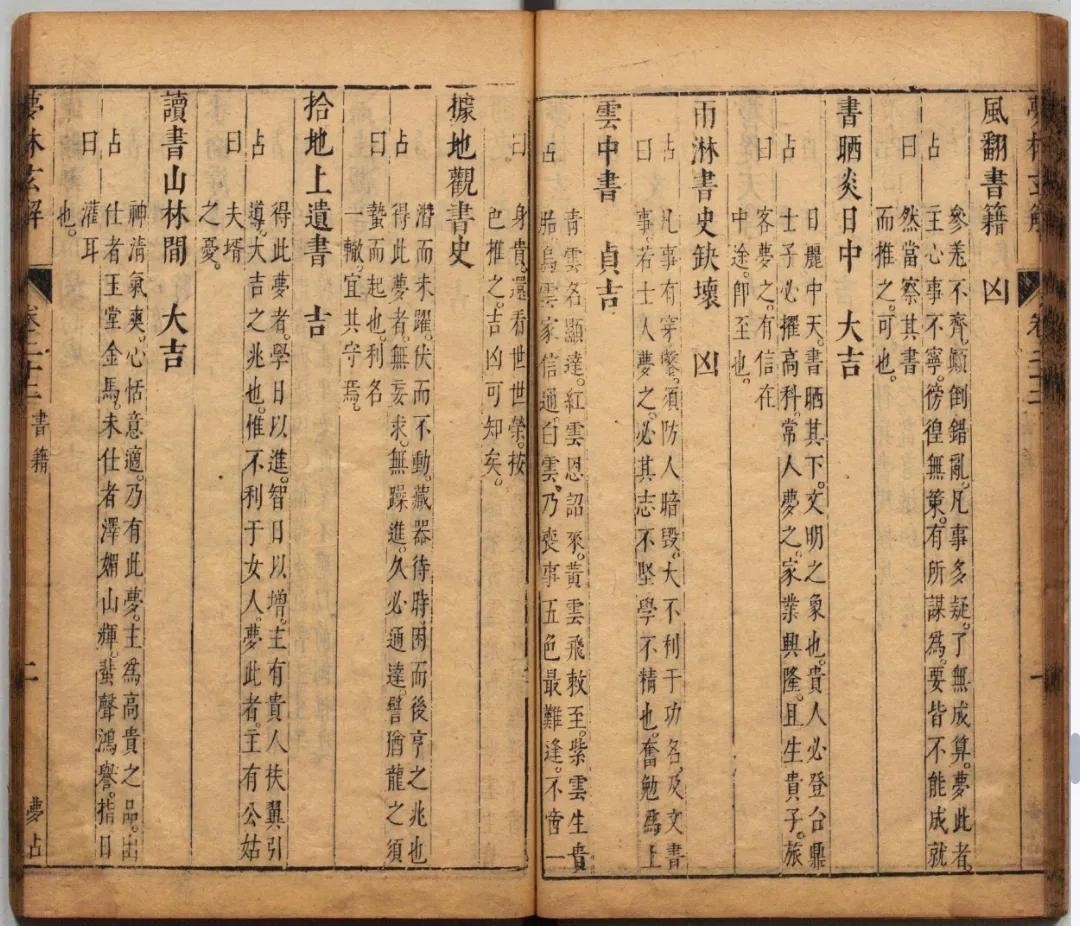 夢林玄解 卷二十三 一
風翻書籍 凶
參差不齊。顛倒錯亂。凡事多疑。了無成算。夢此者。
占 主心事不寧。徬徨無策。有所謀為。要皆不能成就
曰 然當察其書
而推之。可也。
書晒炎日中 大吉
日麗中天。書晒其下。文明之象也。貴人必登台鼎
占 士子必擢高科。常人夢之。家業興隆。且生貴子。旅
曰 客夢之。有信在
中途。即至也。
雨淋書史缺壞 凶
占 凡事有穿鑿。須防人暗毀。大不利于功名。及文書
曰 事。若士人夢之。必其志不堅學不精也。奮勉為上
雲中書 貞吉
青雲名顯達。紅雲恩詔來。黃雲飛敕至。紫雲生貴
占 胎。烏雲家信通。白雲乃喪事五色最難逢。不啻一
曰 身貴。還看世世榮。按
色推之。吉凶可知矣。
據地觀書史
潛而未躍。伏而不動。藏器待時困而後亨之兆也
占 得此夢者。無妄求。無躁進。久必通達。譬猶龍之須
曰 蟄而起也。利名
一轍。宜其守焉。
拾地上遺書 吉
得此夢者。學日以進。智日以增。主有貴人扶翼引
占 導。大吉之兆也。惟不利于女人。夢此者。主有公姑
曰 夫壻
之憂。
讀書山林間 大吉
神清氣爽。心恬意適。乃有此夢。主為高貴之品。由
占 仕者玉堂金馬。未仕者澤媚山輝。蜚聲鴻譽。指日
曰 灌耳
也。
夢林玄解 卷二十三 書籍 二 夢占